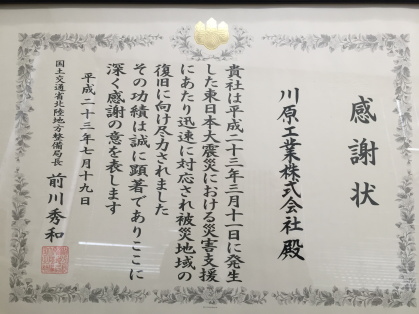 感謝状
川原工業株式会社 殿
貴社は平成二十三年三月十一日に発生
した東日本大震災における災害支援
にあたり迅速に対応され被災地域の
復旧に向け尽力されました
その功績は誠に顕著でありここに
深く感謝の意を表します
平成二十三年七月十九日
国土交通省北陸地方整備局長 前川秀和